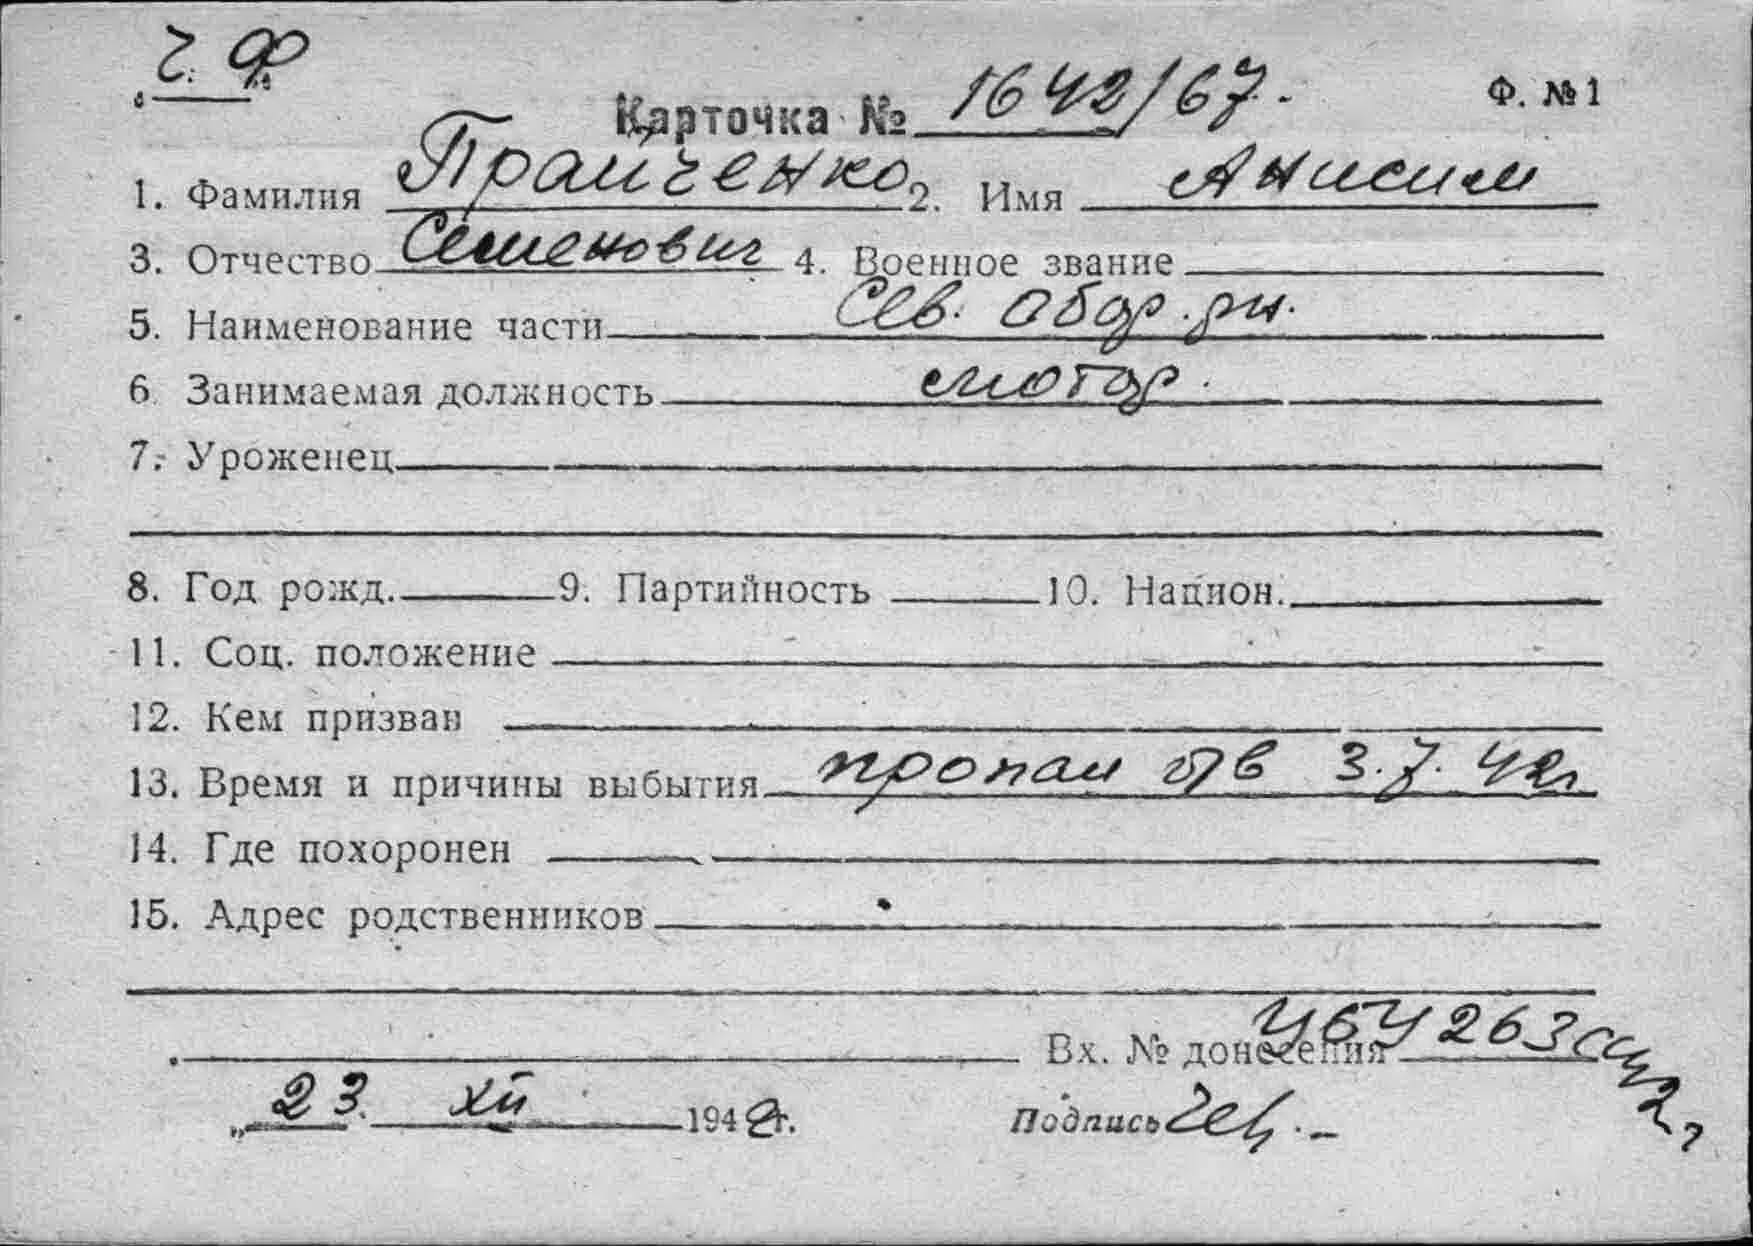 Ч. Ф.
Карточка № 1642/67. Ф. №1
1. Фамилия Прайченко 2. Имя Анисим
3. Отчество Семенович 4. Военное звание
5. Наименование части Сев. обор. рн.
6. Занимаемая должность мотор.
7. Уроженец
8. Год рожд. 9. Партийность 10. Национ.
11. Соц. положение
12. Кем призван
13. Время и причины выбытия пропал б/в 3.7.42г
14. Где похоронен
15. Адрес родственников
Вх. № донесения 263сс
„23. XII 1942г.
Подпись